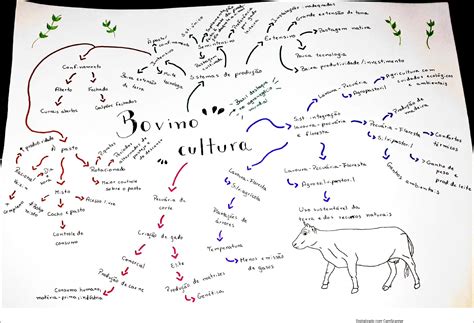 Bovino
cultura
Sistemas de produção
Extensivo
Grande extensão de terra
Pastagem nativa
Baixa tecnologia
Baixa produtividade/investimento
Semi-intensivo
Confinamento
Aberto
Fechado
Currais abertos
Galpões fechados
A pasto
Produtividade
Misto
Cocho e pasto
Controle do
consumo
Rotacionado
Maior controle
sobre o pasto
Pecuária de
corte
Criação de gado
Comercial
Elite
Consumo humano,
Produção de matrizes
Genética
Lavoura-Floresta
Silviagrícola
Plantações de
árvores
Temperatura
Menos emissão
de gases
Sist. integração
lavoura-pecuária
e floresta
Lavoura-Pecuária
Agropastoril
Agricultura com
cuidados ecológicos
e ambientais
Pecuária-Floresta
Silvipastoril
Produção de
Conforto
térmico
Ganho de
peso e
prod. de leite
Lavoura-Pecuária-Floresta
Agrossilvipastoril
Uso sustentável da
terra e dos recursos naturais
Digitalizado com CamScanner